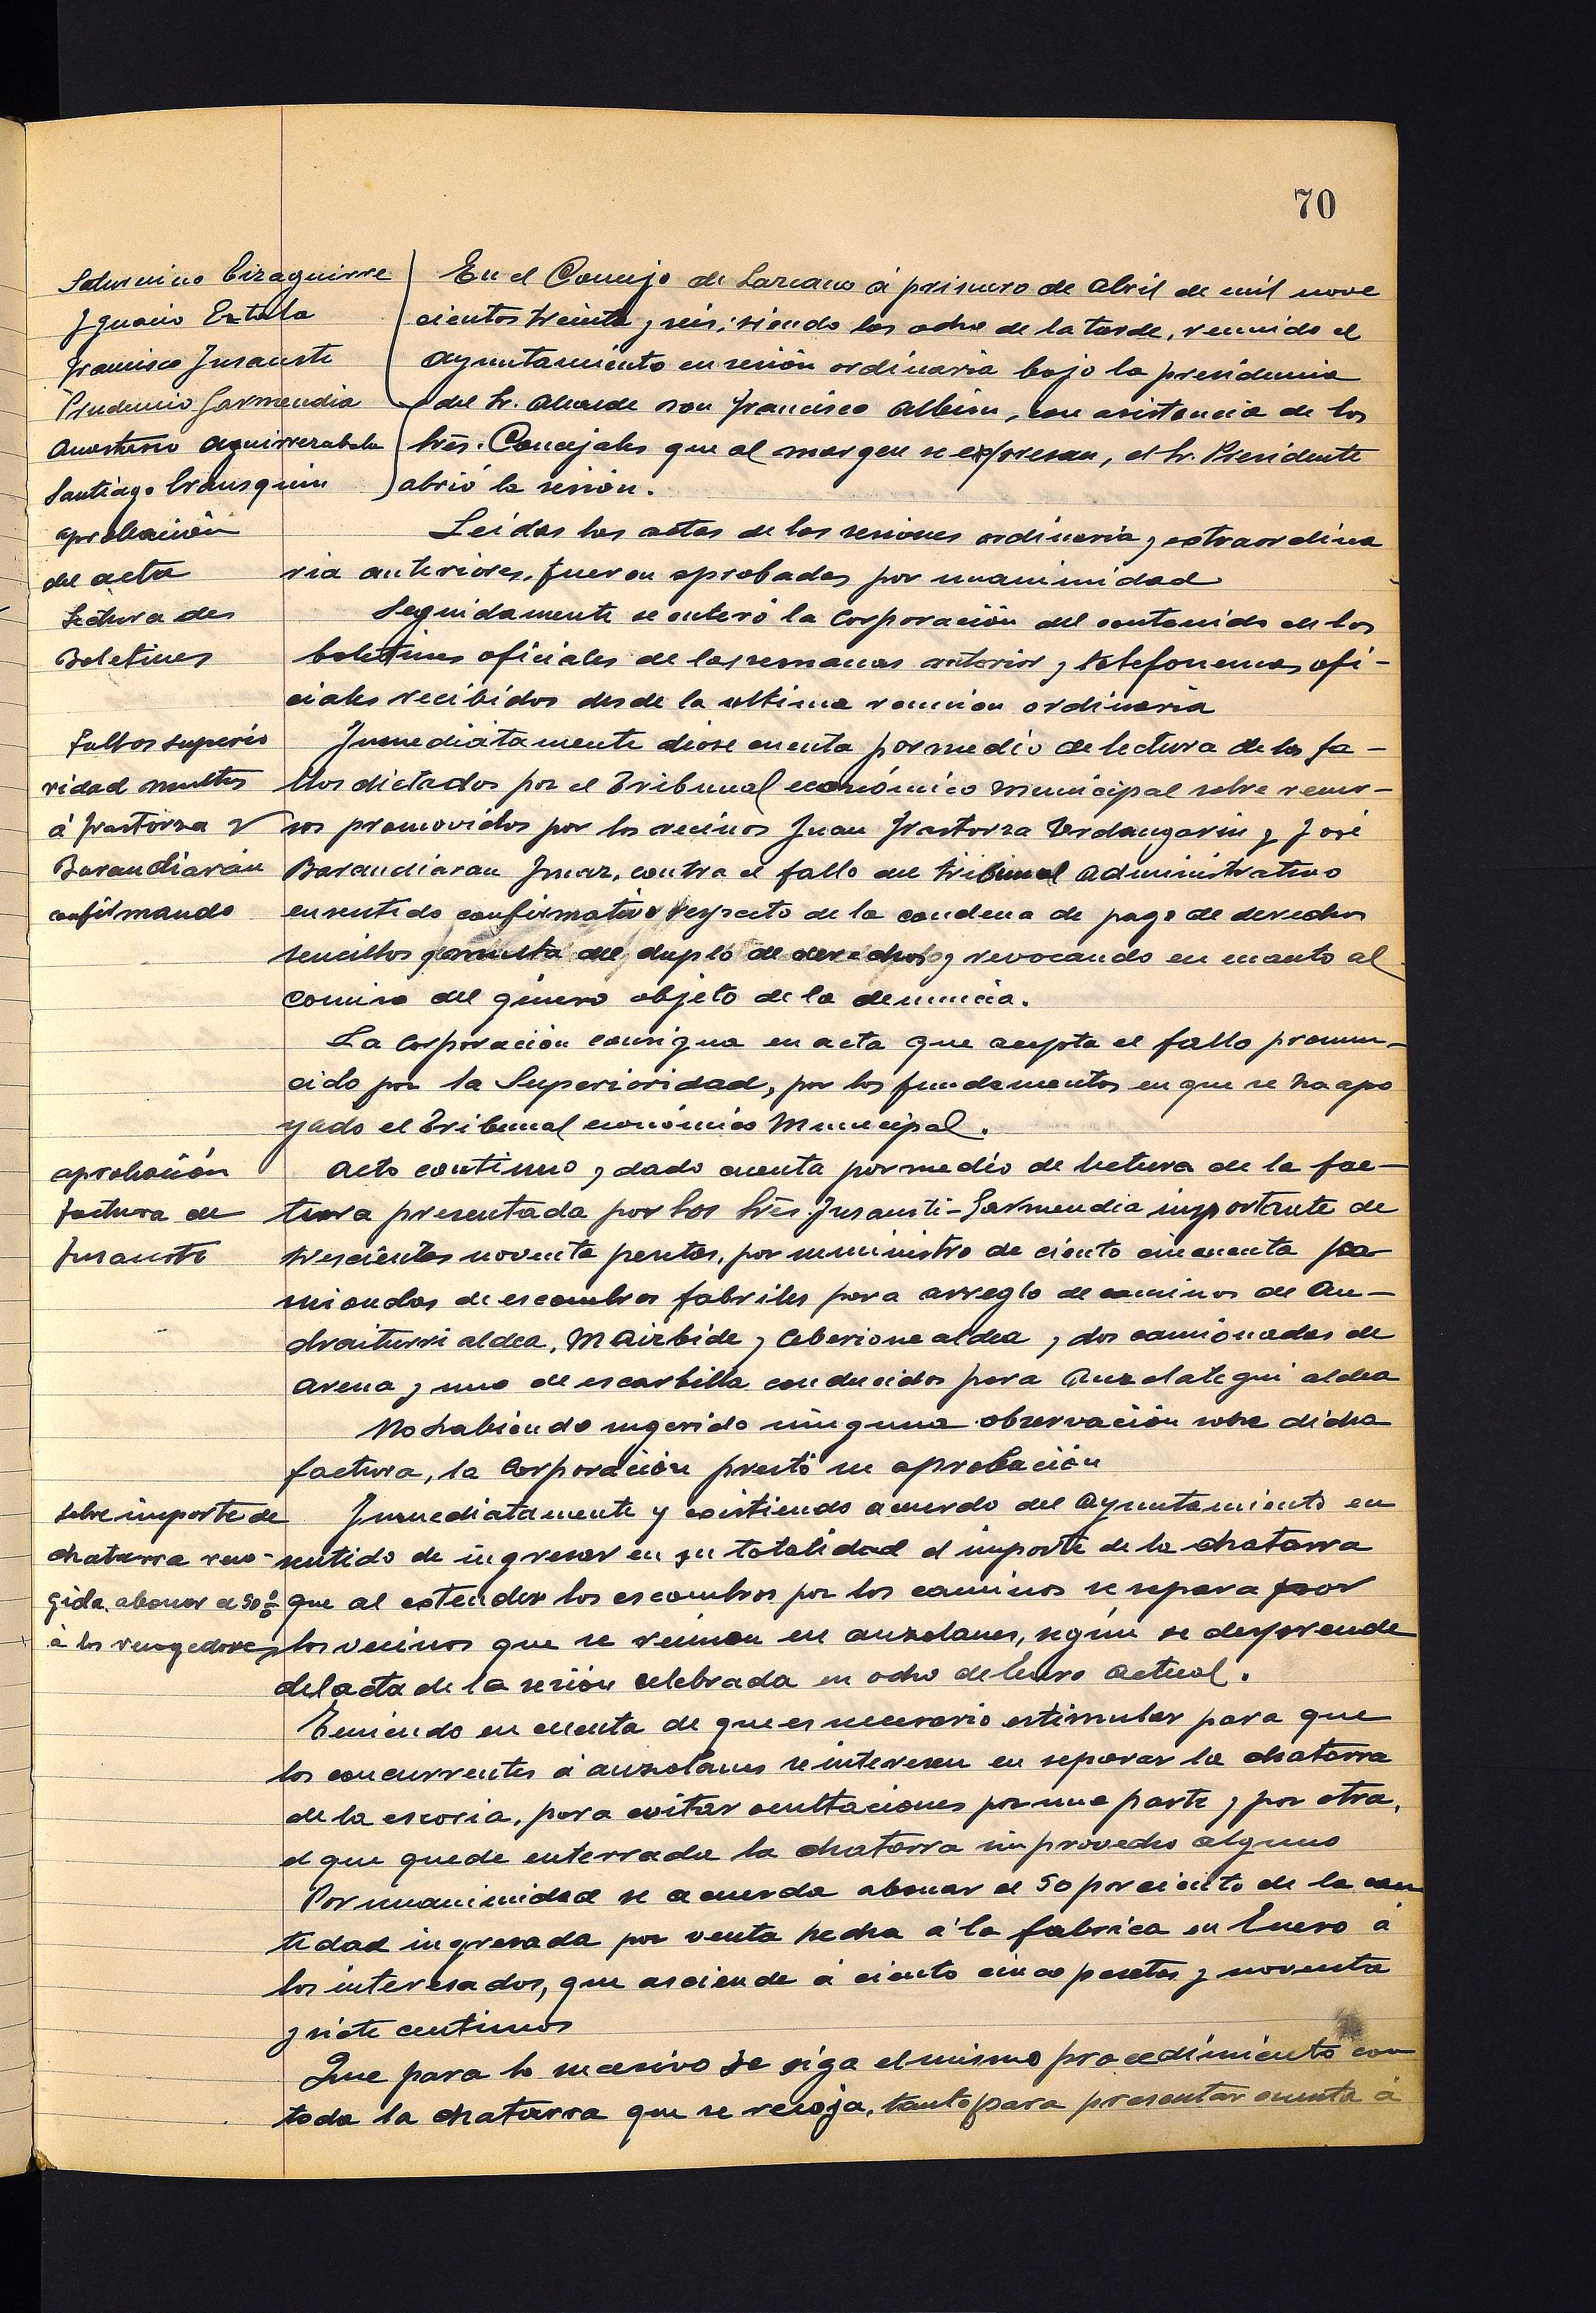 70
Saturnino Eizaguirre
Ygnacio Eztala
Francisco Insausti
Prudencio Garmendia
Anastasio Aguirrezabala
Santiago Irausquin
En el Concejo de Lazcano á primero de Abril de mil nove
cientos treinta y seis; siendo las ocho de la tarde, reunido el
Ayuntamiento en sesión ordinaria bajo la presidencia
del Sr. Alcalde Don Francisco Albisu, con asistencia de los
Srēs. Concejales que al margen se expresan, el Sr. Presidente
abrió la sesión.
aprobación
del acta
Leidas las actas de las sesiones ordinaria y extraordina
ria anteriores, fueron aprobadas por unanimidad
Lectura de
Boletines
Seguidamente se enteró la Corporación del contenido de los
boletines oficiales de las semanas anterior y telefonemas ofi-
ciales recibidos desde la ultima reunion ordinaria
fallos superio
ridad multas
á Irastorza y
Barandiarán
confirmando
Inmediatamente diose cuenta por medio de lectura de los fa-
llos dictados por el Tribunal económico Municipal sobre recur-
sos promovidos por los vecinos Juan Irastorza Urdangarin y José
Barandiaran Imaz, contra el fallo del tribunal administrativo
en sentido confirmativo respecto de la condena de pago de derechos
sencillos y multa del duplo de derechos y revocando en cuanto al
comiso del género objeto de la denuncia.
La Corporación consigna en acta que acepta el fallo pronun-
cido por la Superioridad, por los fundamentos en que se ha apo
yado el Tribunal económico Municipal.
aprobación
factura de
Insausti
Acto continuo y dado cuenta por medio de lectura de la fac-
tura presentada por los Srēs. Insausti-Garmendia importante de
trescientas noventa pesetas, por suministro de ciento cincuenta ca
mionadas de escombros fabriles para arreglo de caminos de An-
draiturri aldea, Mairbide y Ceberione aldea y dos camionadas de
arena y una de escarbilla conducidos para Auzelategui aldea
No habiendo sugerido ninguna observación sobre dicha
factura, la Corporación prestó su aprobación
Sobre importe de
chatarra reco-
gida, abonar el 50%
á los recogedores
Inmediatamente y existiendo acuerdo del Ayuntamiento en
sentido de ingresar en su totalidad el importe de la chatarra
que al extender los escombros por los caminos se separa por
los vecinos que se reunen en auzolanes, según se desprende
del acta de la sesión celebrada en ocho de Enero actual.
Teniendo en cuenta de que es necesario estimular para que
los concurrentes á auzolanes se interesen en separar la chatarra
de la escoria, para evitar ocultaciones por una parte y por otra,
el que quede enterrada la chatarra sin provecho alguno
Por unanimidad se acuerda abonar el 50 por ciento de la can
tidad ingresada por venta hecha á la fabrica en Enero á
los interesados, que asciende á ciento cinco pesetas y noventa
y siete centimos
Que para lo sucesivo se siga el mismo procedimiento con
toda la chatarra que se recoja, tanto para presentar cuenta á